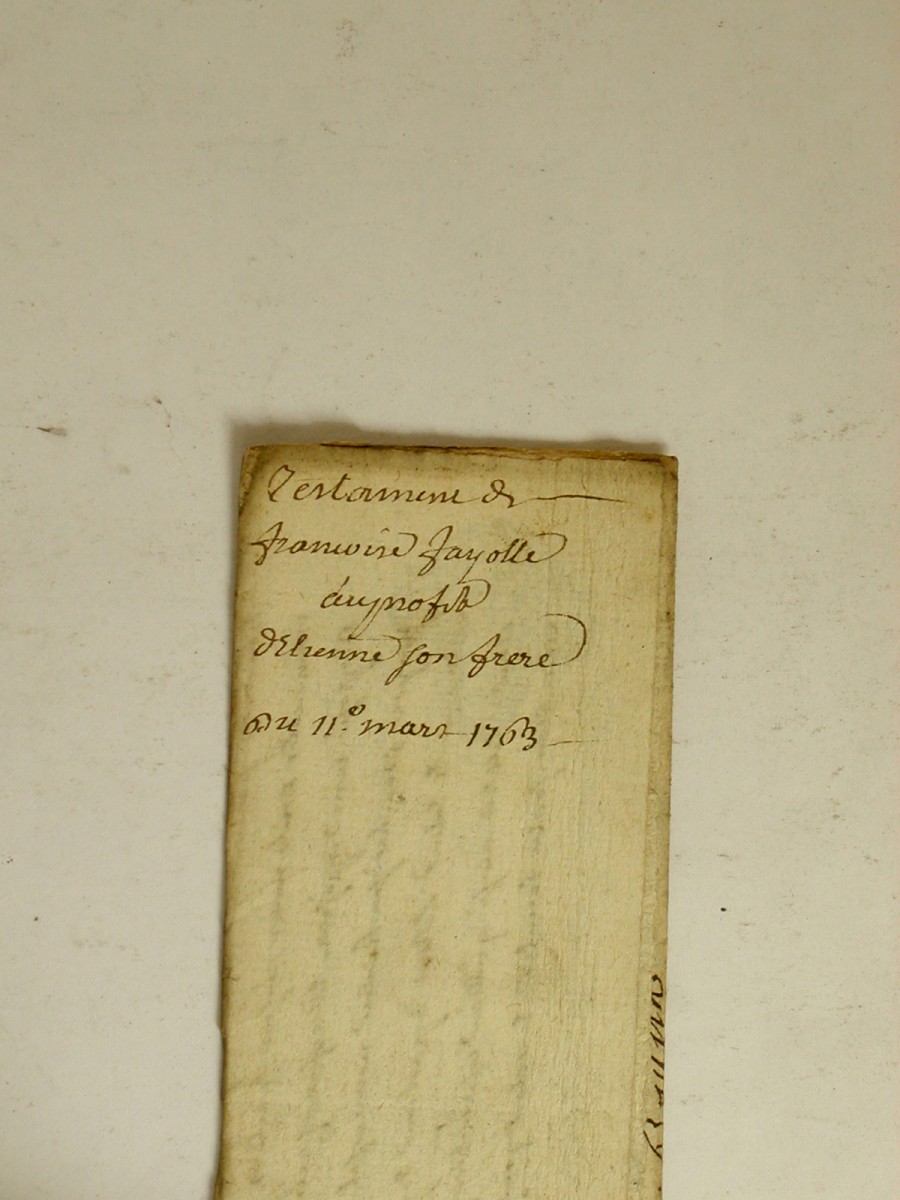 Testament de
francoise fayolle
au profit
dEtienne son frere
Du 11.e mars 1763